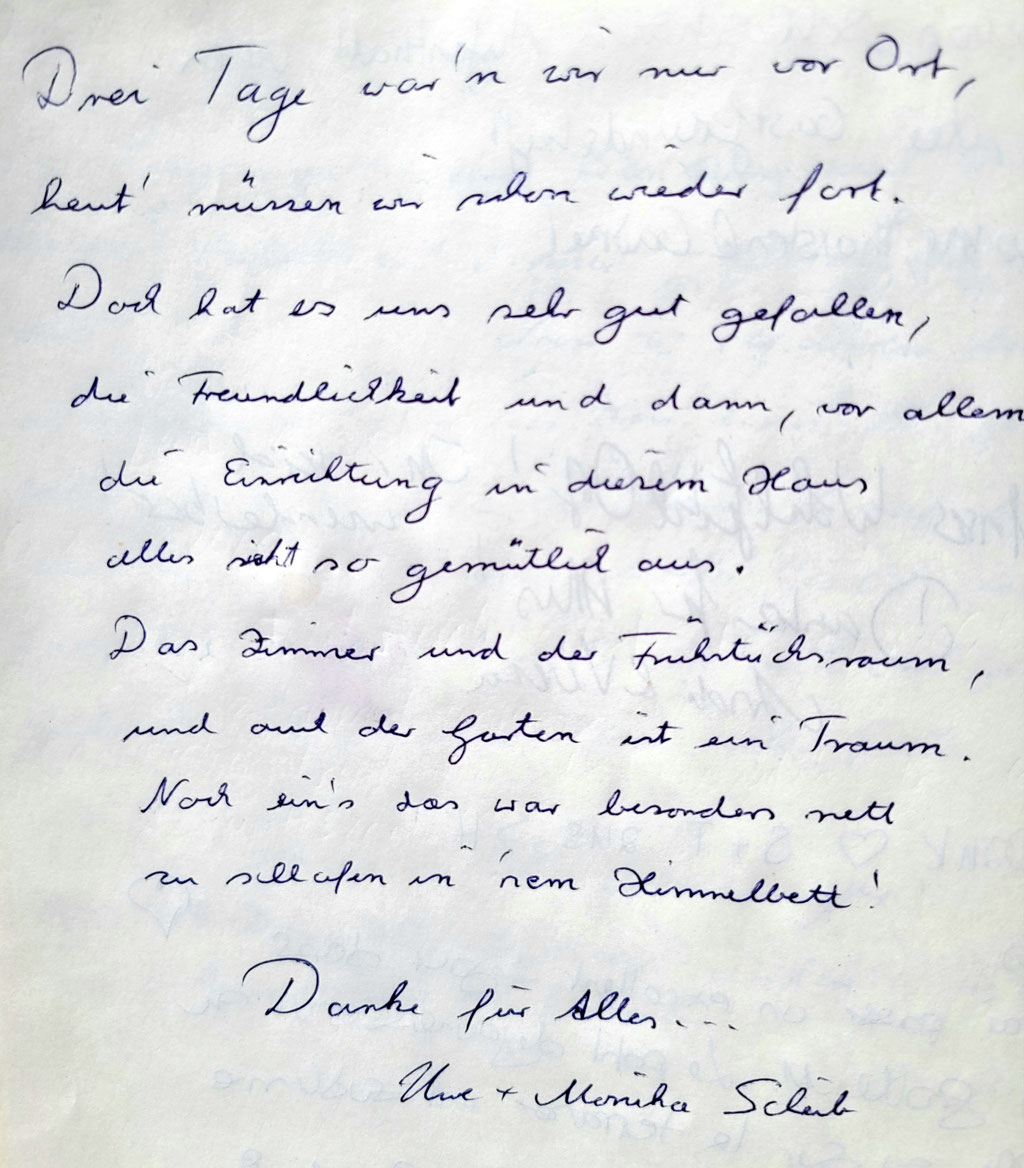 Drei Tage war'n wir nur vor Ort,
heut' müssen wir schon wieder fort.
Doch hat es uns sehr gut gefallen,
die Freundlichkeit und dann, vor allem
die Einrichtung in diesem Haus
alles sieht so gemütlich aus.
Das Zimmer und der Frühstücksraum,
und auch der Garten ist ein Traum.
Noch ein's das war besonders nett
zu schlafen in 'nem Himmelbett!
Danke für Alles...
Uwe + Monika